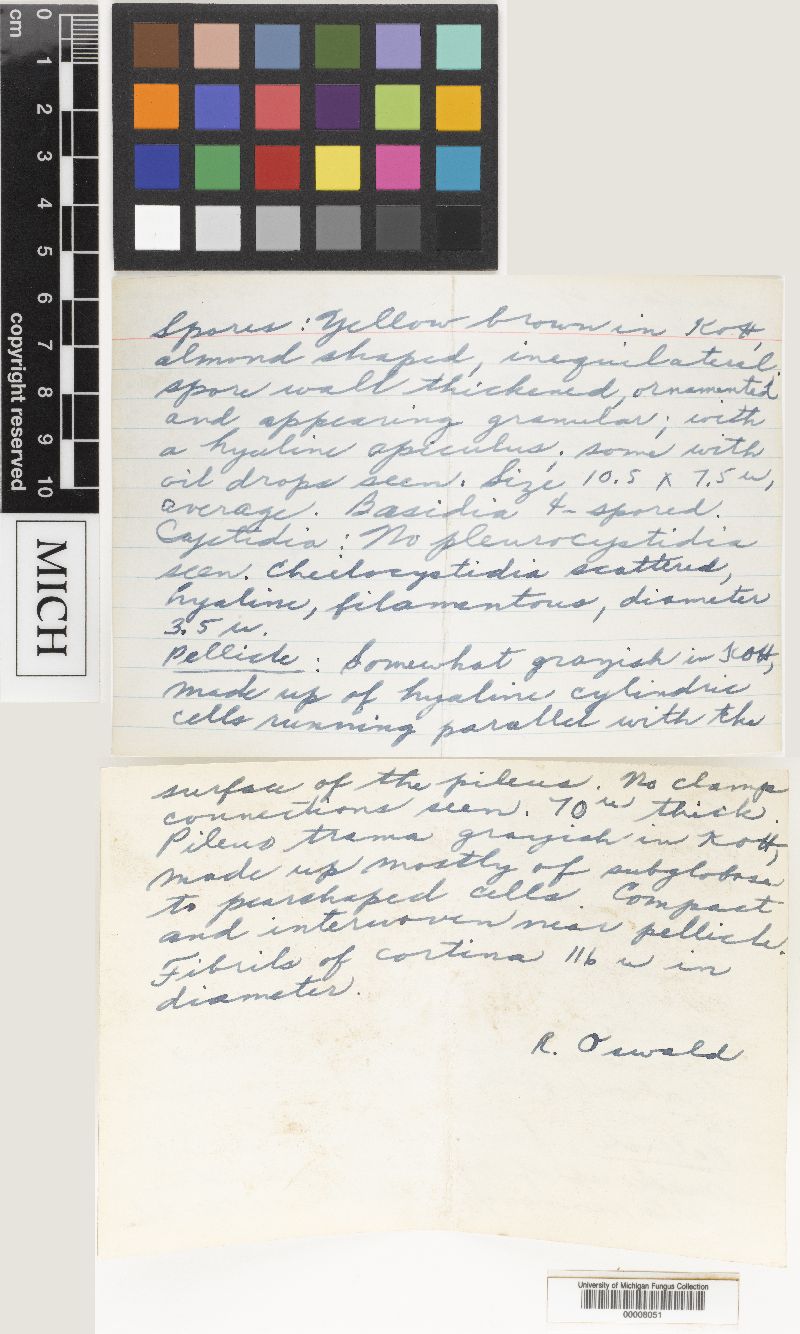 cm
0 1 2 3 4 5 6 7 8 9 10
copyright reserved
MICH
Spores: Yellow brown in KOH,
almond shaped, inequilateral.
spore wall thickened, ornamented
and appearing granular; with
a hyaline apiculus; some with
oil drops seen. Size 10.5 x 7.5 u,
average. Basidia 4-spored.
Cystidia: No pleurocystidia
seen. Cheilocystidia scattered,
hyaline, filamentous, diameter
3.5 u.
Pellicle: Somewhat grayish in KOH,
made up of hyaline cylindric
cells running parallel with the
surface of the pileus. No clamp
connections seen. 70 u thick.
Pileus trama grayish in KOH,
made up mostly of subglobose
to pearshaped cells. Compact
and interwoven near pellicle.
Fibrils of cortina 116 u in
diameter.
R. Oswald
University of Michigan Fungus Collection
00008051